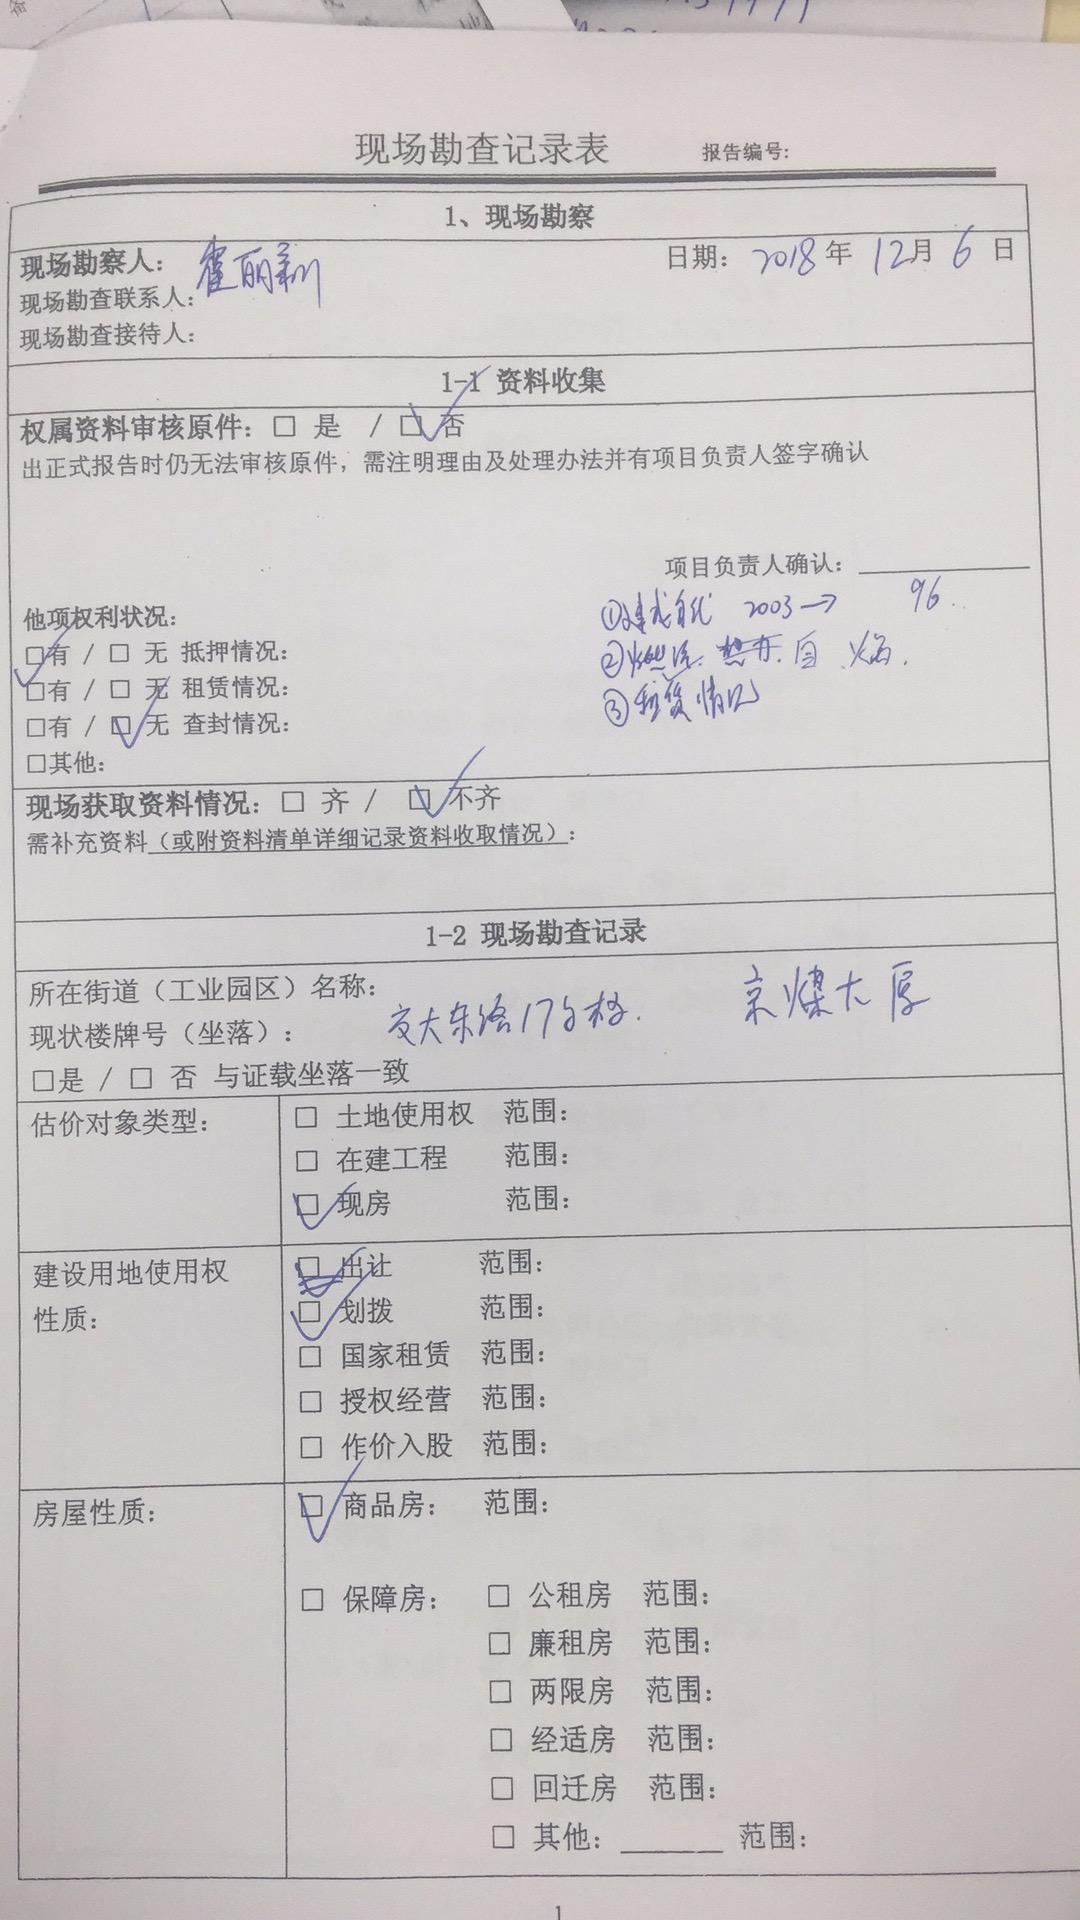 现场勘查记录表 报告编号:
1、现场勘察
现场勘察人: 日期: 2018年 12月 6 日
现场勘查联系人:
现场勘查接待人:
1-1 资料收集
权属资料审核原件: □ 是 / □ 否
出正式报告时仍无法审核原件，需注明理由及处理办法并有项目负责人签字确认
项目负责人确认:
他项权利状况: ①建成年代 2003→ 96.
□有 / □ 无 抵押情况: ②
□有 / □ 无 租赁情况: ③租赁情况
□有 / □ 无 查封情况:
□其他:
现场获取资料情况: □ 齐 / □ 不齐
需补充资料（或附资料清单详细记录资料收取情况）:
1-2 现场勘查记录
所在街道（工业园区）名称:
现状楼牌号（坐落）: 交大东路17号楼. 京煤大厦
□是 / □ 否 与证载坐落一致
估价对象类型: □ 土地使用权 范围:
□ 在建工程 范围:
□ 现房 范围:
建设用地使用权 □ 出让 范围:
性质: □ 划拨 范围:
□ 国家租赁 范围:
□ 授权经营 范围:
□ 作价入股 范围:
房屋性质: □ 商品房: 范围:
□ 保障房: □ 公租房 范围:
□ 廉租房 范围:
□ 两限房 范围:
□ 经适房 范围:
□ 回迁房 范围:
□ 其他:______ 范围:
1